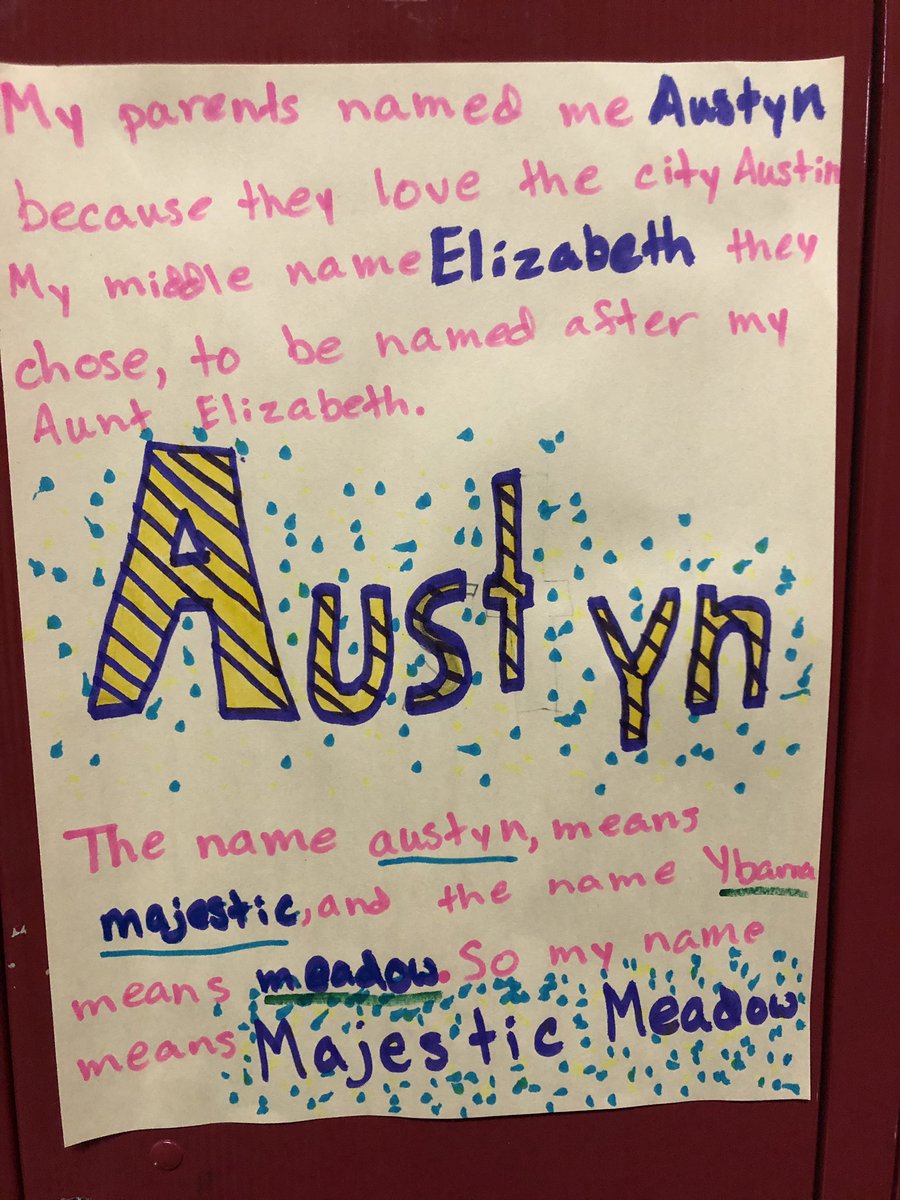 My parents named me Austyn
because they love the city Austin
My middle name Elizabeth they
chose, to be named after my
Aunt Elizabeth.
Austyn
The name austyn, means
majestic, and the name Ybarra
means meadow. So my name
means Majestic Meadow